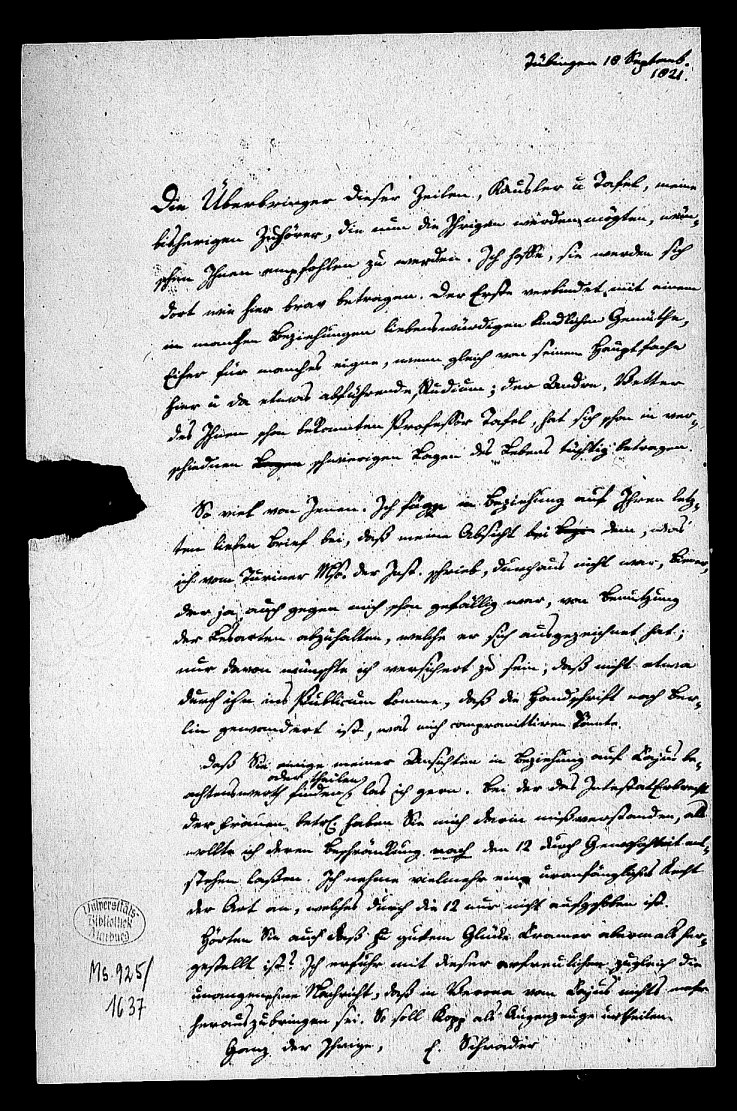 Tübingen 18 Septemb.
1821.
Die Überbringer dieser Zeilen, Kausler u Tafel, meine
bisherigen Zuhörer, die nun die Ihrigen werden mögten, wün-
schen Ihnen empfohlen zu werden. Ich hoffe, sie werden sich
dort wie hier brav betragen. Der Erste verbindet mit einem
in manchen Beziehungen liebenswürdigen kindlichen Gemüthe,
Eifer für manches eigne, wenn gleich von seinem Hauptfache
hier u da etwas abführende Studium; der Andre, Vetter
des Ihnen schon bekannten Professor Tafel, hat sich schon in ver-
schiednen Lagen schwierigen Lagen des Lebens tüchtig betragen.
So viel von Jenen. Ich füge in Beziehung auf Ihren letz-
ten lieben Brief bei, daß meine Absicht bei dem, was
ich vom Turiner Mss. der Inst. schrieb, durchaus nicht war,
der ja auch gegen mich schon gefällig war, von Benutzung
der Lesarten abzuhalten, welche er sich ausgezeichnet hat;
nur davon wünschte ich versichert zu sein, daß nicht etwa
durch ihn ins Publicum komme, daß die Handschrift nach Ber-
lin gewandert ist, was mich compromittiren könte.
Daß Sie einige meiner Ansichten in Beziehung auf Gajus be-
achtenswerth finden oder theilen, las ich gern. Bei der des Intestat Erbrecht
der Frauen betr. haben Sie mich darin mißverstanden, als
wollte ich deren Beschränkung nach den 12 durch Gewohnheit ent-
stehen laßen. Ich nehme vielmehr ein uranfängliches Recht
der Art an, welches durch die 12 nur nicht aufgehoben ist.
Hörten Sie auch daß zu gutem Glücke Cramer abermals her-
gestellt ist? Ich erfuhr mit dieser erfreulichen zugleich die
unangenehme Nachricht, daß in Verona vom Gajus nichts mehr
herauszubringen sei. So soll Kopp als Augenzeuge urtheilen.
Ganz der Ihrige, E. Schrader
Universitäts-
Bibliothek
Marburg
Ms. 925/
1637